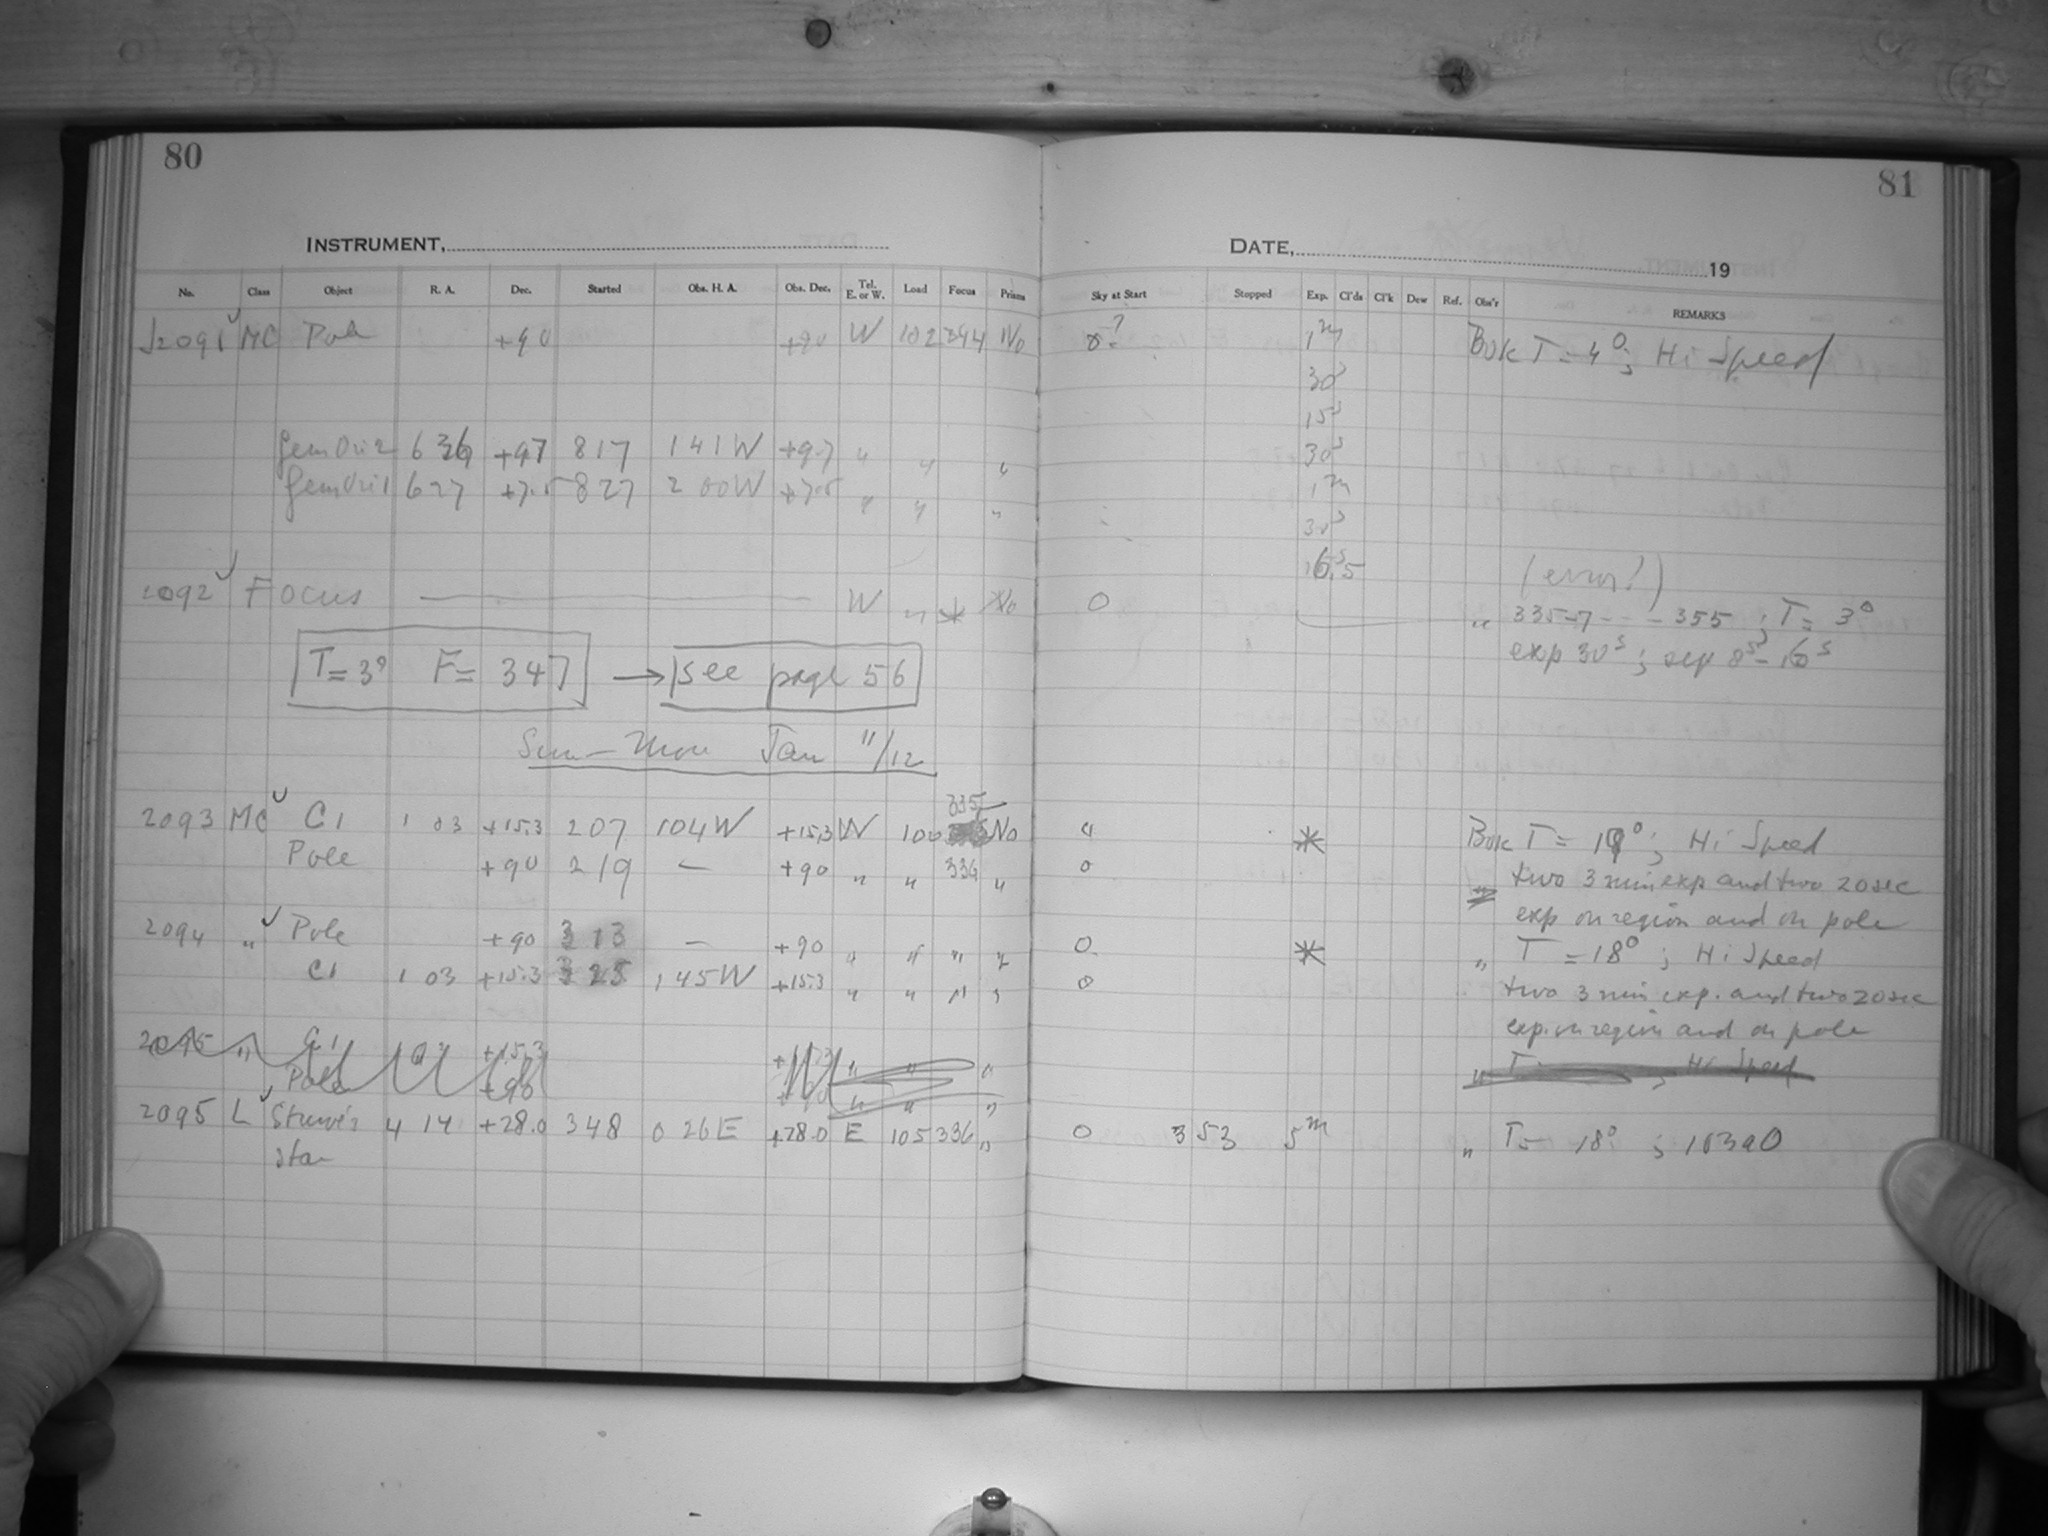 80
81
INSTRUMENT,
DATE, 19
No. Class Object R. A. Dec. Started Obs. H. A. Obs. Dec. Tel. E. or W. Load Focus Prisms Sky at Start Stopped Exp. Cl'ds Cl'k Dew Ref. Obs'r REMARKS
J2091 MC Pole +90 +90 W 102 344 No 0-? 1m Bok T = 4°; Hi Speed
30s
15s
Gem Ori 2 6 36 +9.7 8 17 1 41 W +9.7 " " " 30s
Gem Ori 1 6 27 +7.5 8 27 2 00 W +7.5 " " " 1m
30s
(error?)
2092 Focus W " * No 0 " 335-7 - - - 355; T = 3°
exp 30s; sep 8s - 16s
T = 3° F = 347 → see page 56
Sun - Mon Jan 11/12
335
2093 MC C1 1 03 +15.3 2 07 1 04 W +15.3 W 100 No " * Bok T = 18°; Hi Speed
Pole +90 2 19 — +90 " " 334 " 0 two 3 min exp and two 20 sec
" exp on region and on pole
2094 " Pole +90 3 13 — +90 " " " " 0 * " T = 18°; Hi Speed
C1 1 03 +15.3 3 25 1 45 W +15.3 " " " " 0 two 3 min exp. and two 20 sec
exp. on region and on pole
2095 " C1 +15.3 " " " " T = ; Hi Speed
Pole +90 " " "
2095 L Struve's 4 14 +28.0 3 48 0 26 E +28.0 E 105 336 " 0 3 53 5m " T = 18°; 103aO
star